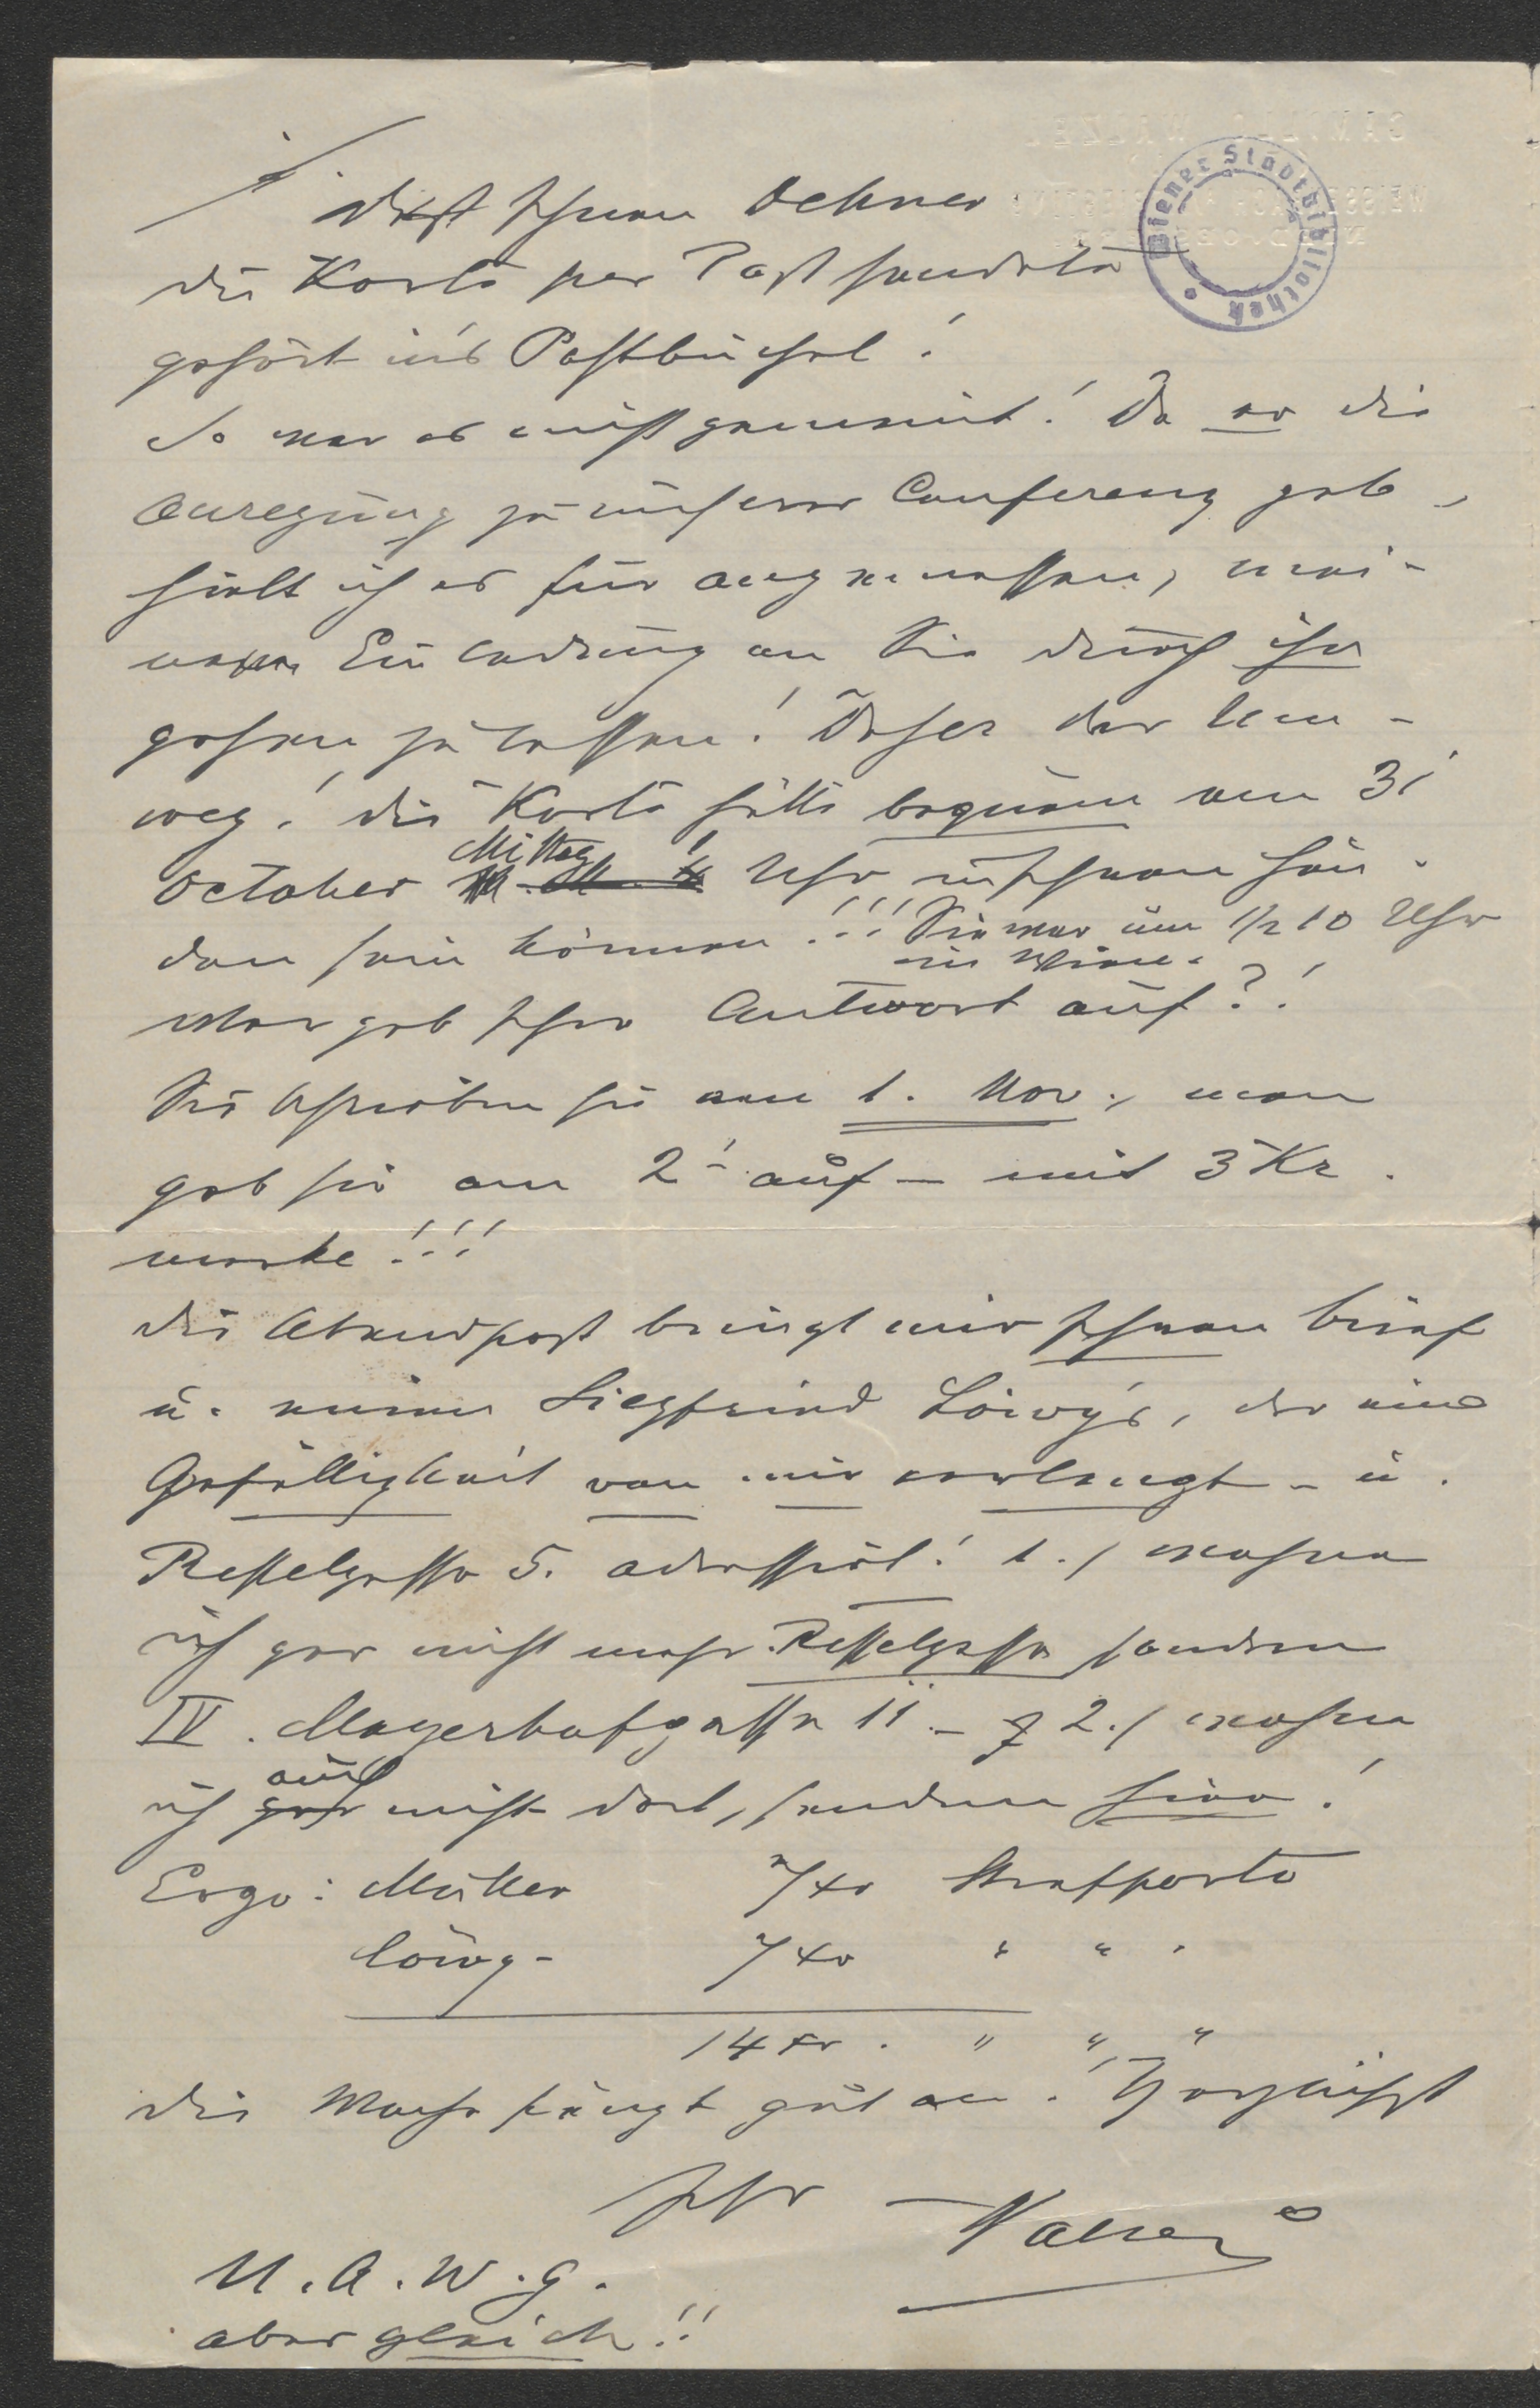 Daß Ihnen Oehner
die Karte per Post sandete
gehört in's Postbüchel!
So war es nicht gemeint! Da er die
Anregung zu unserer Conferenz gab,
hielt ich es für angemessen, mei-
ne Einladung an Sie durch ihn
gehen zu lassen! Daher der Um-
weg! Die Karte hätte bequem am 31
October Mittag Uhr in Ihren Hän-
den sein können!!! Sie war um 1/2 10 Uhr
in Wien.
Wer gab Ihre Antwort auf?!
Sie schrieben sie am 1. Nov., man
gab sie am 2. auf – mit 3 Kr.
marke!!!
Die Abendpost bringt mir Ihren Brief
u. einen Siegfried Löwy's, der eine
Gefälligkeit von mir verlangt – u.
Resselgasse 5. adressirt! 1./ wohne
ich gar nicht mehr Resselgasse sondern
IV. Mayerhofgasse 11. – 2./ wohne
ich auch nicht dort, sondern hier!
Ergo: Müller 7 xr Strafporto
Löwy – 7 xr " " "
14 xr. " " "
Die Woche fängt gut an! Herzlichst
Ihr
U.A.W.G.
aber gleich!!
Wiener Stadtbibliothek